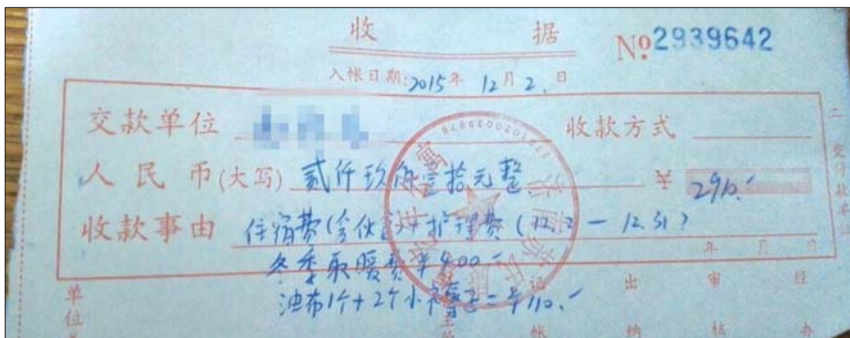 收 据 №2939642
入帐日期:2015年 12月 2日
交款单位 收款方式
人民币(大写) 贰仟玖佰壹拾元整 ¥ 2910.-
收款事由 住宿费(含伙食)+护理费(12.2-12.31)
年 月 日
冬季取暖费¥400-
油布1个+2个小 子=¥110.-
单位 记帐 出纳 审核 经办
二交付款单位